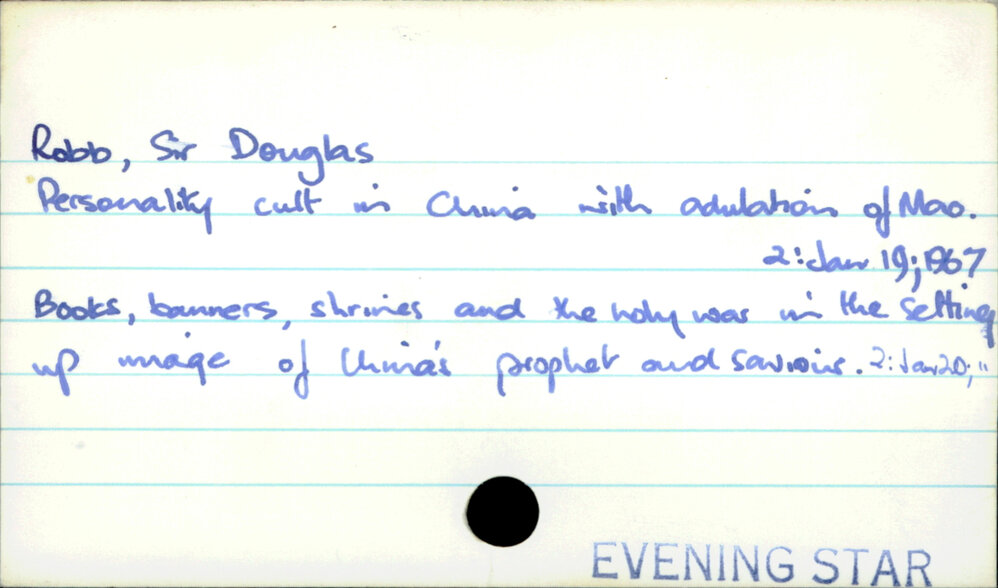 Robb, Sir Douglas
Personality cult in China with adulation of Mao.
2: Jan 19; 1967
Books, banners, shrines and the holy war in the setting
up image of China's prophet and saviour. 2: Jan 20; "
EVENING STAR